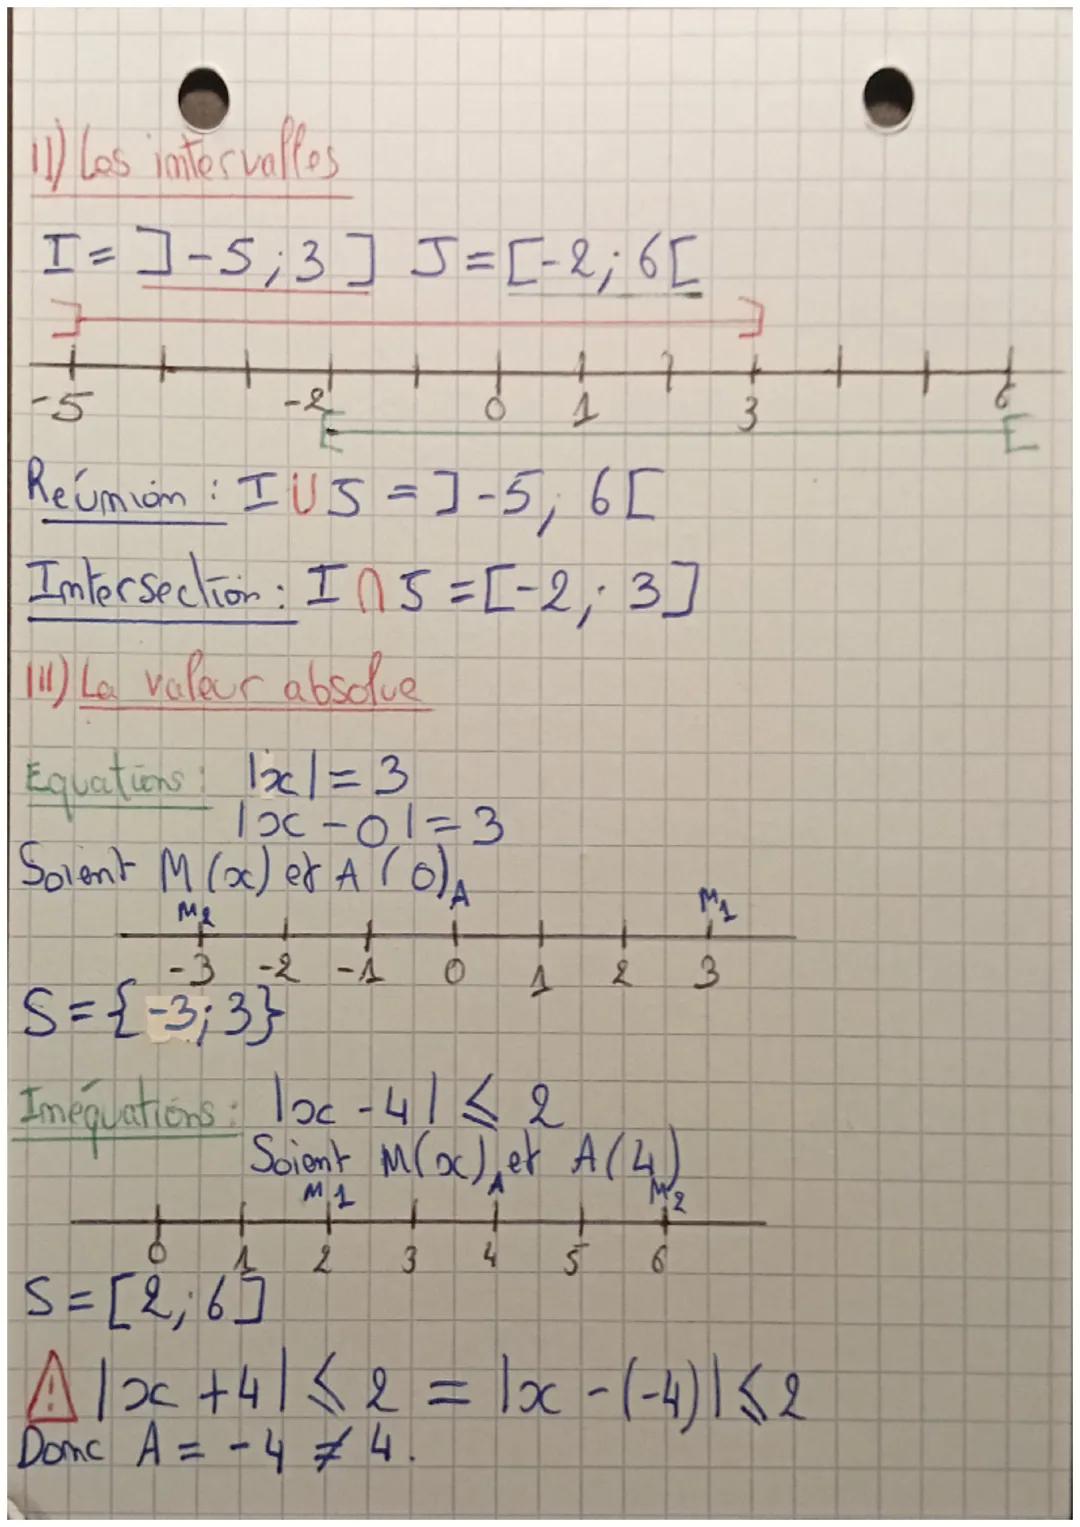 II) Les intervalles
I = ]-5 ; 3] J = [-2 ; 6[
-5 -2 0 1 2 3 6
Réunion : I U J = ]-5 ; 6[
Intersection : I ∩ J = [-2 ; 3]
III) La valeur absolue
Equations : |x| = 3
|x - 0| = 3
Soient M(x) et A(0)
M2 A M1
-3 -2 -1 0 1 2 3
S = {-3 ; 3}
Inéquations : |x - 4| ⩽ 2
Soient M(x) et A(4)
M1 A M2
0 1 2 3 4 5 6
S = [2 ; 6]
⚠ |x + 4| ⩽ 2 = |x - (-4)| ⩽ 2
Donc A = -4 ≠ 4.